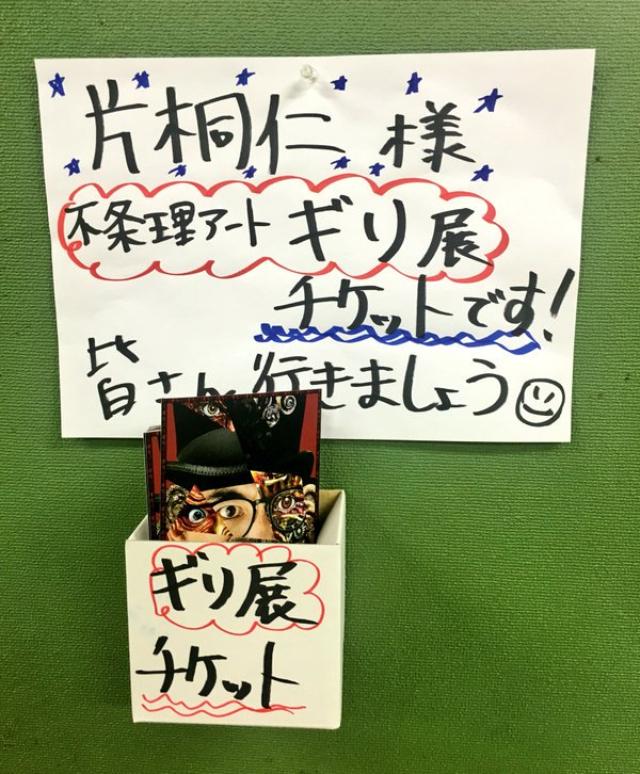 片桐仁 様
不条理アート ギリ展
チケットです!
皆さん 行きましょう
ギリ展
チケット